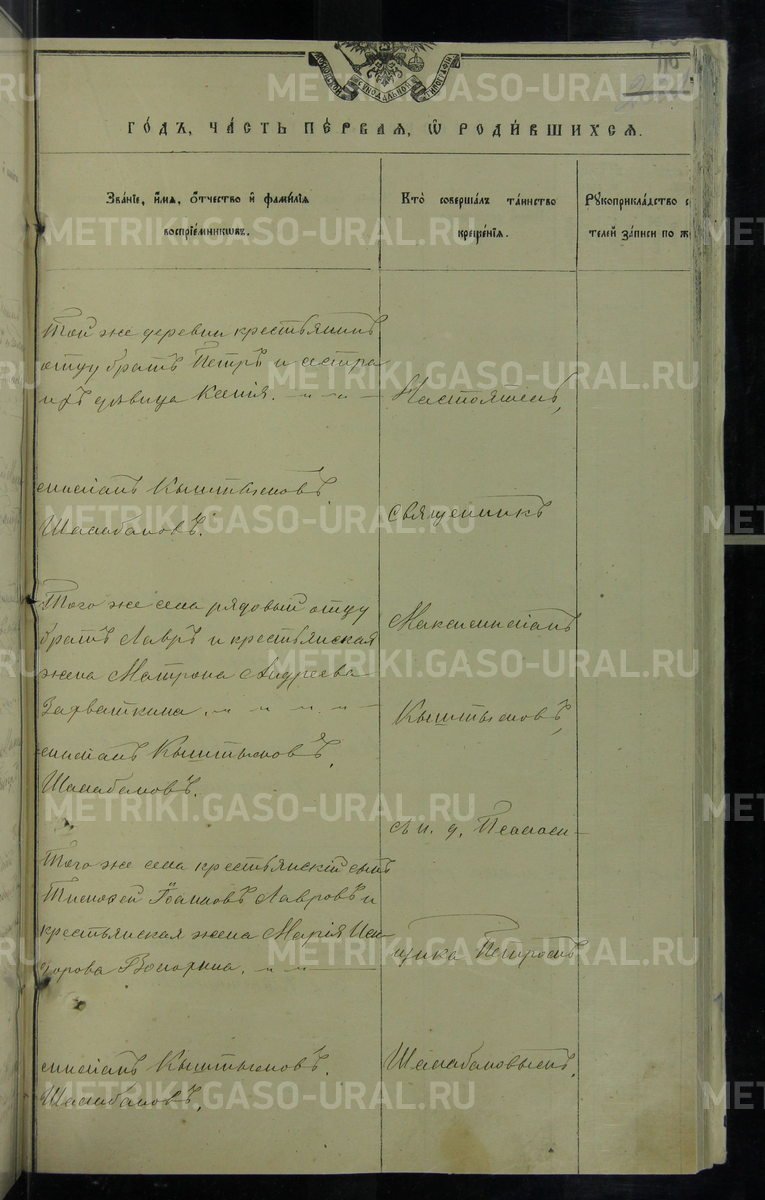 МОСКОВСКОЙ СѴНОДАЛЬНОЙ ТИПОГРАФІИ
ГО́ДЪ, ЧА́СТЬ ПЕ́РВАѦ, Ѿ РОДИ́ВШИХСѦ.
Зва́нїе, и҆́мѧ, ѻ҆́тчество и҆ фами́лїѧ
воспрїе́мникѡвъ.
Кто̀ соверша́лъ та́инство
креще́нїѧ.
Рꙋкоприкла́дство с
телей за́писи по ж
Той же деревни крестьянинъ
отцу братъ Петръ и сестра
ихъ дѣвица Ксенія.
Настоятель,
миліанъ Кыштымовъ,
Шалабановъ.
Священникъ
Того же села рядовый отцу
братъ Лавръ и крестьянская
жена Матрона Андреева
Захваткина.
Максимиліанъ
Кыштымовъ,
миліанъ Кыштымовъ,
Шалабановъ.
съ и. д. Псалом-
Того же села крестьянскій сынъ
Тимофей Іоанновъ Лавровъ и
крестьянская жена Марія Иси-
дорова
щика Петромъ
миліанъ Кыштымовъ,
Шалабановъ,
Шалабановымъ.
METRIKI.GASO-URAL.RU